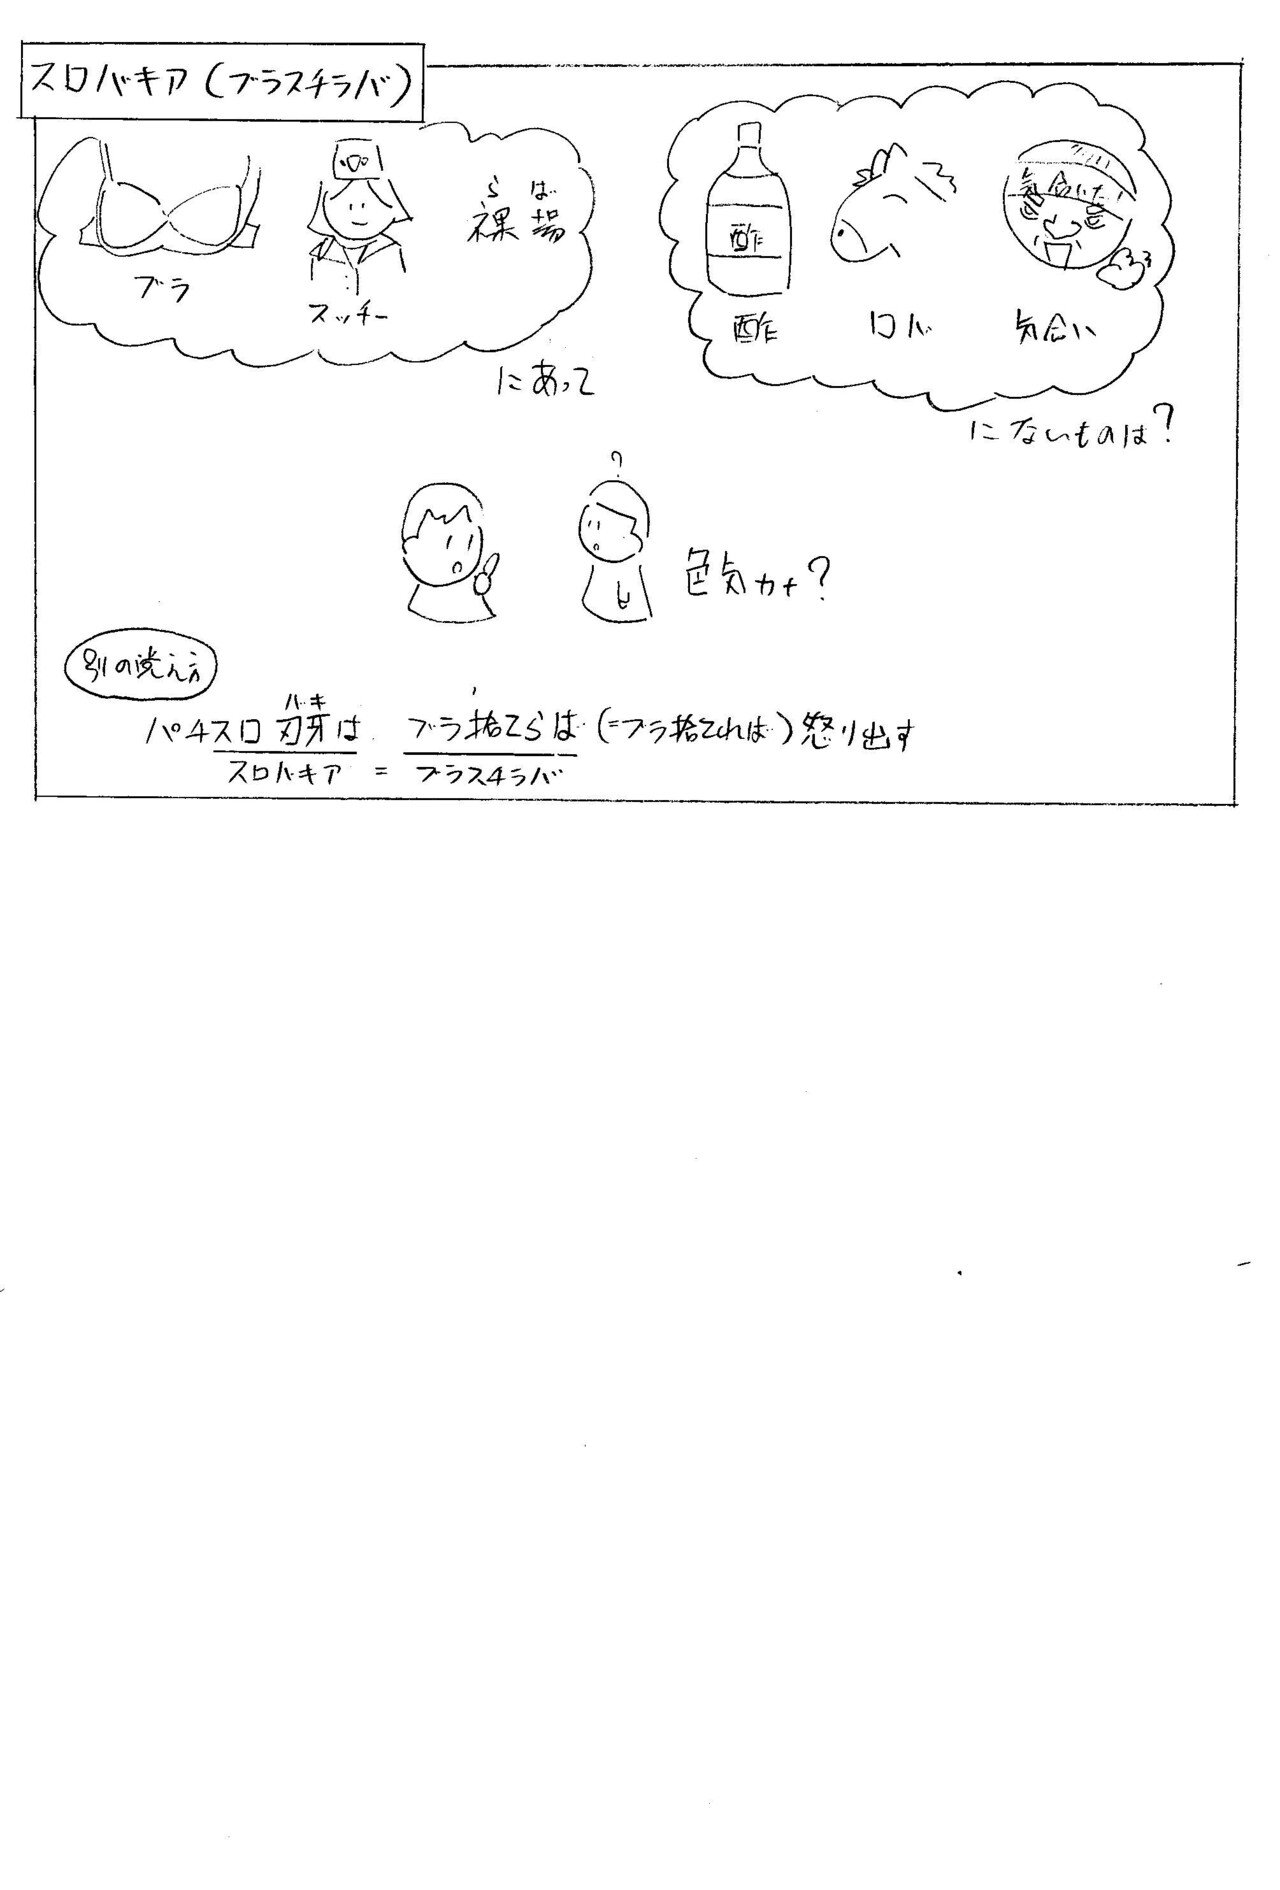 スロバキア(ブラスチラバ)
ブラ
スッチー
らば
裸場
にあって
酢
気合いだ!
酢
ロバ
気合い
にないものは?
?
色気カナ?
別の覚え方
バキ
パチスロ刃牙は ブラ捨てらば(=ブラ捨てれば)怒り出す
スロバキア = ブラスチラバ